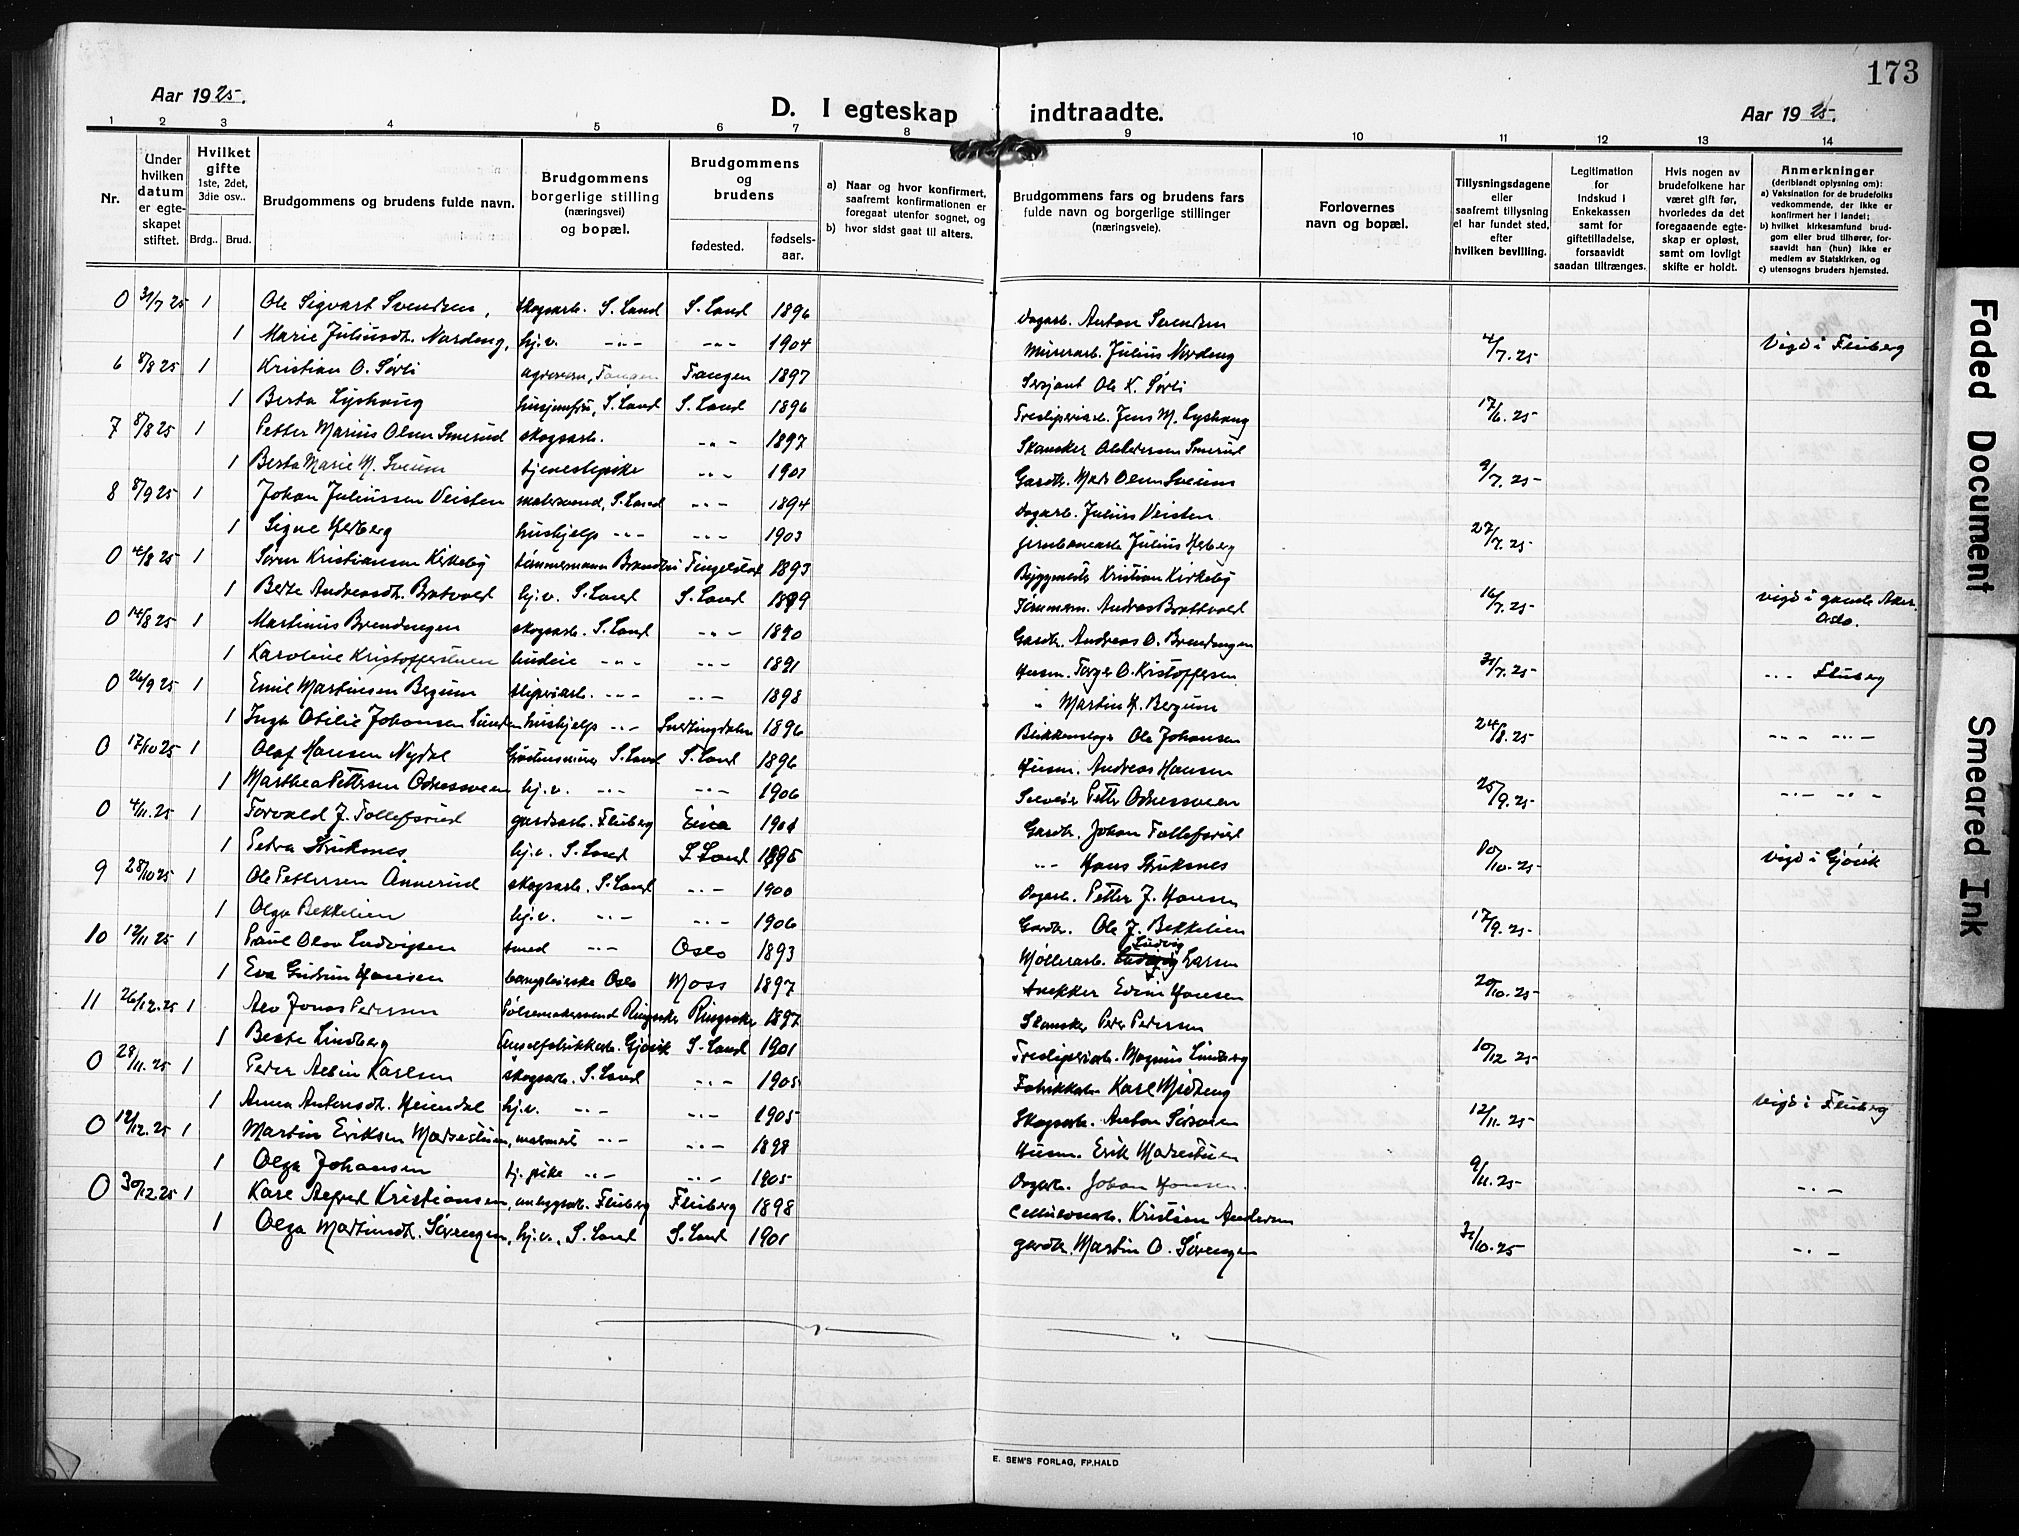 173
Aar 1925.
D. I egteskap indtraadte.
Aar 1925.
1 2 3 4 5 6 7 8 9 10 11 12 13 14
Nr.
Under hvilken datum er egte-skapet stiftet.
Hvilket gifte 1ste, 2det, 3die osv..
Brdg.. Brud.
Brudgommens og brudens fulde navn.
Brudgommens borgerlige stilling (næringsvei) og bopæl.
Brudgommens og brudens
fødested. fødsels-aar.
a) Naar og hvor konfirmert, saafremt konfirmationen er foregaat utenfor sognet, og
b) hvor sidst gaat til alters.
Brudgommens fars og brudens fars fulde navn og borgerlige stillinger (næringsveie).
Forlovernes navn og bopæl.
Tillysningsdagene eller saafremt tillysning ei har fundet sted, efter hvilken bevilling.
Legitimation for indskud i Enkekassen samt for giftetilladelse, forsaavidt saadan tiltrænges.
Hvis nogen av brudefolkene har været gift før, hvorledes da det foregaaende egte-skap er opløst, samt om lovligt skifte er holdt.
Anmerkninger (deriblandt oplysning om):
a) Vaksination for de brudefolks vedkommende, der ikke er konfirmert her i landet;
b) hvilket kirkesamfund brud-gom eller brud tilhører, for-saavidt han (hun) ikke er medlem av Statskirken, og
c) utensogns bruders hjemsted.
0 31/7 25 1 Ole Sigvart Svendsen, skogsarb. S. Land S. Land 1896 Dagarb. Anton Svendsen
1 Marie Juliusdt. Nordeng, hj.v. -"- -"- 1904 Murerarb. Julius Nordeng 4/7. 25 Vigd i Fluberg
6 8/8 25 1 Kristian O. Sørli agronom, Tangen Tangen 1897 Sersjant Ole K. Sørli
1 Berta Lyshaug husjomfru, S. Land S. Land 1896 Tresliperiarb. Jens M. Lyshaug 17/6. 25
7 8/8 25 1 Petter Marius Olsen Smerud skogsarb. -"- 1897 Skomaker Ole Petersen Smerud
1 Berta Marie M. Sveum tjenestepike -"- 1901 Gardbr. Mads Olsen Sveum 9/7. 25
8 8/9 25 1 Johan Juliussen Veisten malersvend, S. Land -"- 1894 Dagarb. Julius Veisten
1 Signe Herberg hushjelp -"- -"- 1903 Jernbanearb. Julius Herberg 27/7. 25
0 14/8 25 1 Søren Kristiansen Kirkeby tømmermann Brandbu Tingelstad 1893 Byggmester Kristian Kirkeby
1 Berte Andreasdt. Bratvold hj.v. S. Land S. Land 1899 Tømmerm. Andreas Brattvold 16/7. 25 vigd i gamle Aker. Oslo.
0 14/8 25 1 Martinius Brendengen skogsarb. S. Land -"- 1890 Gardbr. Andreas O. Brendengen
1 Karoline Kristofferstuen budeie -"- -"- 1891 Husm. Torger O. Kristoffersen 31/7. 25 -"- Fluberg
0 26/9 25 1 Emil Martinsen Bergum sliperiarb. -"- -"- 1898 " Martin H. Bergum
1 Inga Otilie Johansen hushjelp -"- Snertingdalen 1896 Blikkenslager Ole Johansen 24/8. 25 -"- -"-
0 17/10 25 1 Olaf Hansen Nydal S. Land S. Land 1896 Husm. Andreas Hansen
1 Marthea Pettersen Odnessveen hj.v. -"- -"- 1906 Petter Odnessveen 25/9. 25 -"- -"-
0 4/11. 25 1 Torvald J. Tollefsrud gardsarb. Fluberg Eina 1901 Gardbr. Johan Tollefsrud
1 Petra Struksnes hj.v. S. Land S. Land 1895 -"- Hans Struksnes 10/10. 25 vigd i Gjøvik
9 28/10 25 1 Ole Pettersen Annerud skogsarb. S. Land -"- 1900 Dagarb. Petter J. Hansen
1 Olga Bekkelien hj.v. -"- -"- 1906 Gardbr. Ole J. Bekkelien 17/9. 25
10 12/11 25 1 Paul Olav Ludvigsen smed -"- Oslo 1893 Møllerarb. Ludvig Larsen
1 Eva Gudrun Hansen Oslo Moss 1897 Snekker Edvin Hansen 20/10. 25
11 26/12. 25 1 Alv Jonas Pedersen Pølsemakersvend Ringsaker Ringsaker 1897 Skomaker Peder Pedersen
1 Berte Lindberg Gjøvik S. Land 1901 Tresliperiarb. Magnus Lindberg 10/12. 25
0 28/11. 25 1 Peder Albin Karlsen skogsarb. S. Land -"- 1905 Fabrikkarb. Karl Midteng
1 Anna Antonsdt. Heiendal hj.v. -"- -"- 1905 Skogsarb. Anton Sørsveen 12/11. 25 Vigd i Fluberg
0 12/12. 25 1 Martin Eriksen Madsestuen, -"- -"- 1898 Husm. Erik Madsestuen
1 Olga Johansen tj. pike -"- -"- 1905 Dagarb. Johan Hansen. 9/11. 25 -"-
0 30/12 25 1 Karl Alfred Kristiansen, anleggsarb. Fluberg Fluberg 1898 Cellulosearb. Kristian Andersen
1 Olga Martinsdt. Sørengen, hj.v., S. Land S. Land 1901 gardbr. Martin O. Sørengen 31/10. 25 -"-
E. SEM'S FORLAG, FR.HALD
Faded Document
Smeared Ink